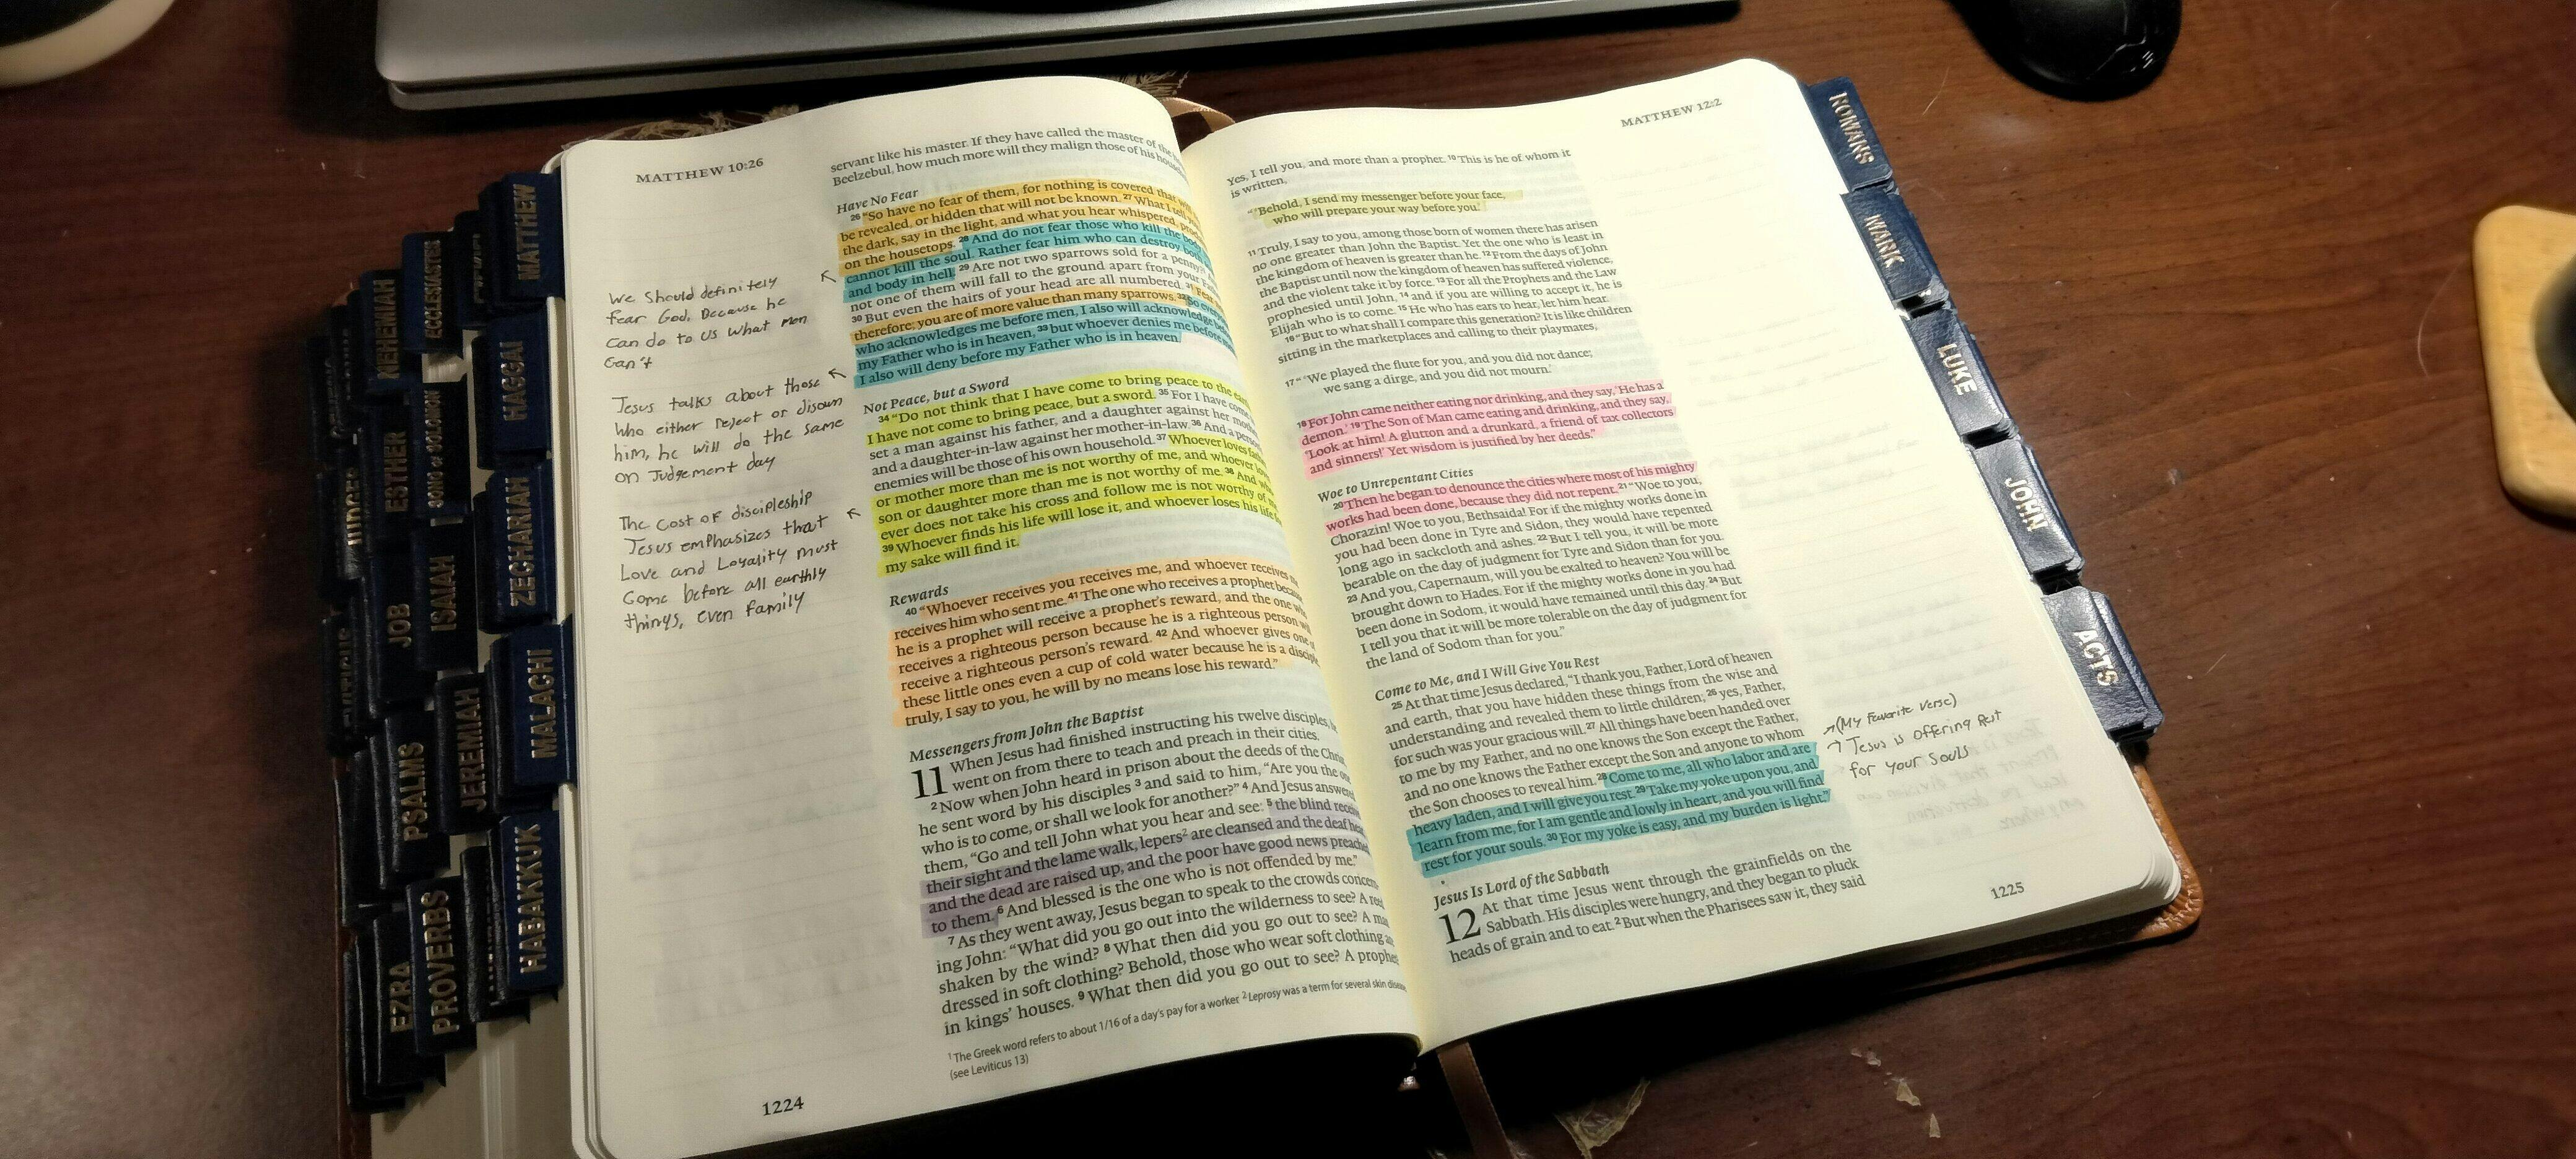 MATTHEW 10:26
servant like his master. If they have called the master of the
Beelzebul, how much more will they malign those of his
Have No Fear
26 "So have no fear of them, for nothing is covered that
be revealed, or hidden that will not be known. 27 What I tell
the dark, say in the light, and what you hear whispered,
on the housetops. 28 And do not fear those who kill the
cannot kill the soul. Rather fear him who can destroy
and body in hell. 29 Are not two sparrows sold for a penny?
not one of them will fall to the ground apart from your
30 But even the hairs of your head are all numbered. 31
therefore; you are of more value than many sparrows. 32 So
who acknowledges me before men, I also will acknowledge
my Father who is in heaven, 33 but whoever denies me before
I also will deny before my Father who is in heaven.
Not Peace, but a Sword
34 "Do not think that I have come to bring peace to the
I have not come to bring peace, but a sword. 35 For I have come
set a man against his father, and a daughter against her
and a daughter-in-law against her mother-in-law. 36 And a
enemies will be those of his own household. 37 Whoever loves
or mother more than me is not worthy of me, and whoever
son or daughter more than me is not worthy of me. 38 And
ever does not take his cross and follow me is not worthy of
39 Whoever finds his life will lose it, and whoever loses his life
my sake will find it.
Rewards
40 "Whoever receives you receives me, and whoever receives
receives him who sent me. 41 The one who receives a prophet
he is a prophet will receive a prophet's reward, and the one
receives a righteous person because he is a righteous person
receive a righteous person's reward. 42 And whoever gives one
these little ones even a cup of cold water because he is a
truly, I say to you, he will by no means lose his reward."
Messengers from John the Baptist
11 When Jesus had finished instructing his twelve disciples,
went on from there to teach and preach in their cities.
2 Now when John heard in prison about the deeds of the
he sent word by his disciples 3 and said to him, "Are you the
who is to come, or shall we look for another?" 4 And Jesus
them, "Go and tell John what you hear and see: 5 the blind
their sight and the lame walk, lepers2 are cleansed and the deaf
and the dead are raised up, and the poor have good news
to them. 6 And blessed is the one who is not offended by me."
7 As they went away, Jesus began to speak to the crowds
ing John: "What did you go out into the wilderness to see? A
shaken by the wind? 8 What then did you go out to see? A
dressed in soft clothing? Behold, those who wear soft clothing
in kings' houses. 9 What then did you go out to see? A
1 The Greek word refers to about 1/16 of a day's pay for a worker 2 Leprosy was a term for several skin
(see Leviticus 13)
1224
We should definitely
fear God, Because he
can do to us what men
can't
Jesus talks about those
who either reject or disown
him, he will do the same
on Judgement day
The Cost of discipleship
Jesus emphasizes that
Love and Loyality must
Come before all earthly
things, even family
MATTHEW 12:2
Yes, I tell you, and more than a prophet. 10 This is he of whom it
is written,
"'Behold, I send my messenger before your face,
who will prepare your way before you.'
11 Truly, I say to you, among those born of women there has arisen
no one greater than John the Baptist. Yet the one who is least in
the kingdom of heaven is greater than he. 12 From the days of John
the Baptist until now the kingdom of heaven has suffered violence,
and the violent take it by force. 13 For all the Prophets and the Law
prophesied until John, 14 and if you are willing to accept it, he is
Elijah who is to come. 15 He who has ears to hear, let him hear.
16 "But to what shall I compare this generation? It is like children
sitting in the marketplaces and calling to their playmates,
17 "'We played the flute for you, and you did not dance;
we sang a dirge, and you did not mourn.'
18 For John came neither eating nor drinking, and they say, 'He has a
demon.' 19 The Son of Man came eating and drinking, and they say,
'Look at him! A glutton and a drunkard, a friend of tax collectors
and sinners!' Yet wisdom is justified by her deeds."
Woe to Unrepentant Cities
20 Then he began to denounce the cities where most of his mighty
works had been done, because they did not repent. 21 "Woe to you,
Chorazin! Woe to you, Bethsaida! For if the mighty works done in
you had been done in Tyre and Sidon, they would have repented
long ago in sackcloth and ashes. 22 But I tell you, it will be more
bearable on the day of judgment for Tyre and Sidon than for you.
23 And you, Capernaum, will you be exalted to heaven? You will be
brought down to Hades. For if the mighty works done in you had
been done in Sodom, it would have remained until this day. 24 But
I tell you that it will be more tolerable on the day of judgment for
the land of Sodom than for you."
Come to Me, and I Will Give You Rest
25 At that time Jesus declared, "I thank you, Father, Lord of heaven
and earth, that you have hidden these things from the wise and
understanding and revealed them to little children; 26 yes, Father,
for such was your gracious will. 27 All things have been handed over
to me by my Father, and no one knows the Son except the Father,
and no one knows the Father except the Son and anyone to whom
the Son chooses to reveal him. 28 Come to me, all who labor and are
heavy laden, and I will give you rest. 29 Take my yoke upon you, and
learn from me, for I am gentle and lowly in heart, and you will find
rest for your souls. 30 For my yoke is easy, and my burden is light."
Jesus Is Lord of the Sabbath
12 At that time Jesus went through the grainfields on the
Sabbath. His disciples were hungry, and they began to pluck
heads of grain and to eat. 2 But when the Pharisees saw it, they said
1225
(My Favorite Verse)
Jesus is offering Rest
for your Souls
MATTHEW
HAGGAI
ZECHARIAH
MALACHI
HABAKKUK
ECCLESIASTES
SONG OF SOLOMON
ISAIAH
JEREMIAH
PROVERBS
NEHEMIAH
ESTHER
JOB
PSALMS
EZRA
ROMANS
MARK
LUKE
JOHN
ACTS